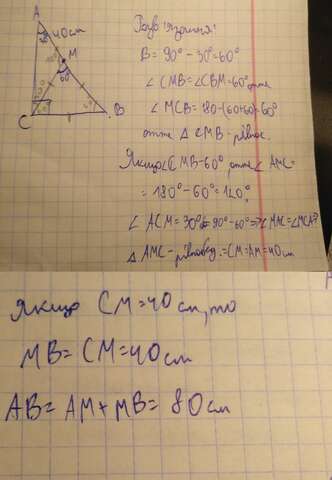 A
40см
M
60°
C
B
Розв'язання
B = 90° - 30° = 60°
∠ CMB = ∠CBM = 60° отже
∠ MCB = 180 - (60+60) = 60°
отже △ CMB - рівнос.
Якщо ∠CMB = 60° отже ∠ AMC =
= 180° - 60° = 120°
∠ ACM = 30° = 90° - 60° => ∠MAC = ∠MCA
△ AMC - рівнобед. = CM = AM = 40 см
Якщо CM = 40 см, то
MB = CM = 40 см
AB = AM + MB = 80 см